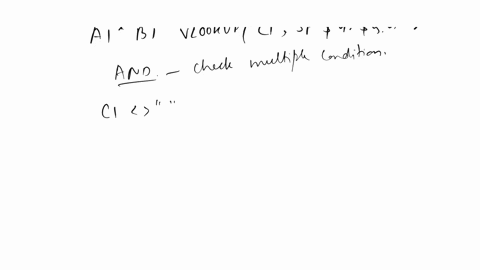 A1 * B1 VLOOKUP( C1,
AND. — check multiple condition.
C1 <> " "